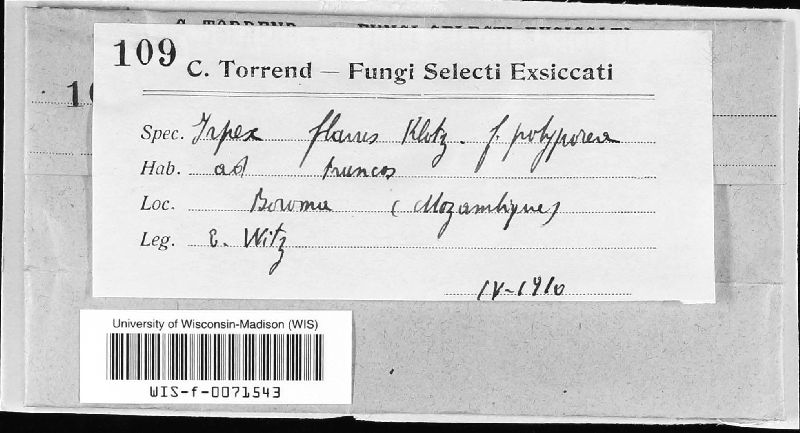 109 C. Torrend — Fungi Selecti Exsiccati
Spec. Irpex flavus Klotz. f. polyporea
Hab. ad truncos
Loc. Boroma (Mozambique)
Leg. E. Witz
IV-1910
University of Wisconsin-Madison (WIS)
WIS-f-0071543